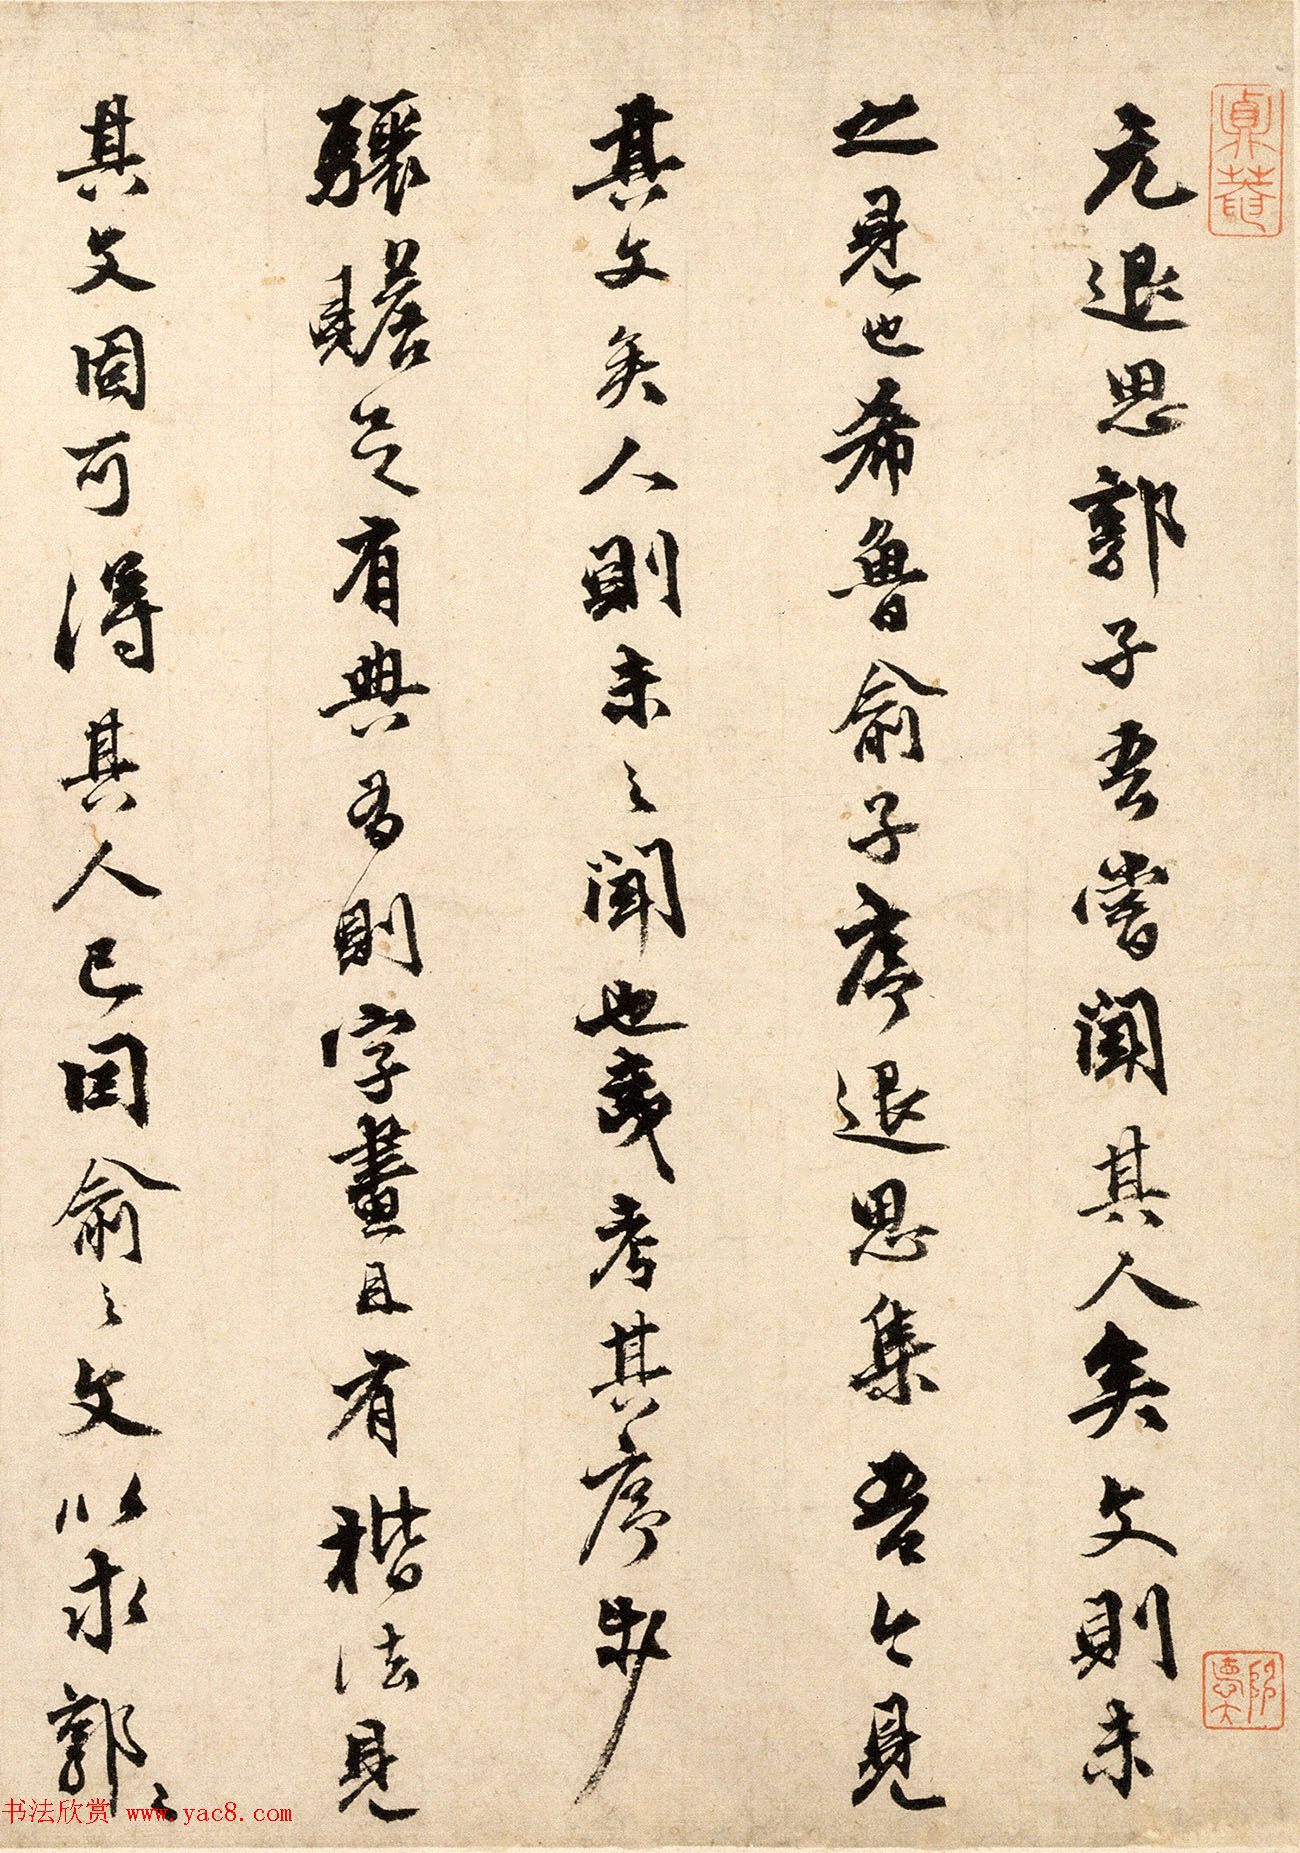 元退思郭子吾嘗聞其人矣文則未
之見也希魯俞子序退思集吾今見
其文矣人則未之聞也爰考其序步
驟贍足有典有則字畫且有楷法見
其文固可得其人已因俞之文以求郭之
书法欣赏 www.yac8.com